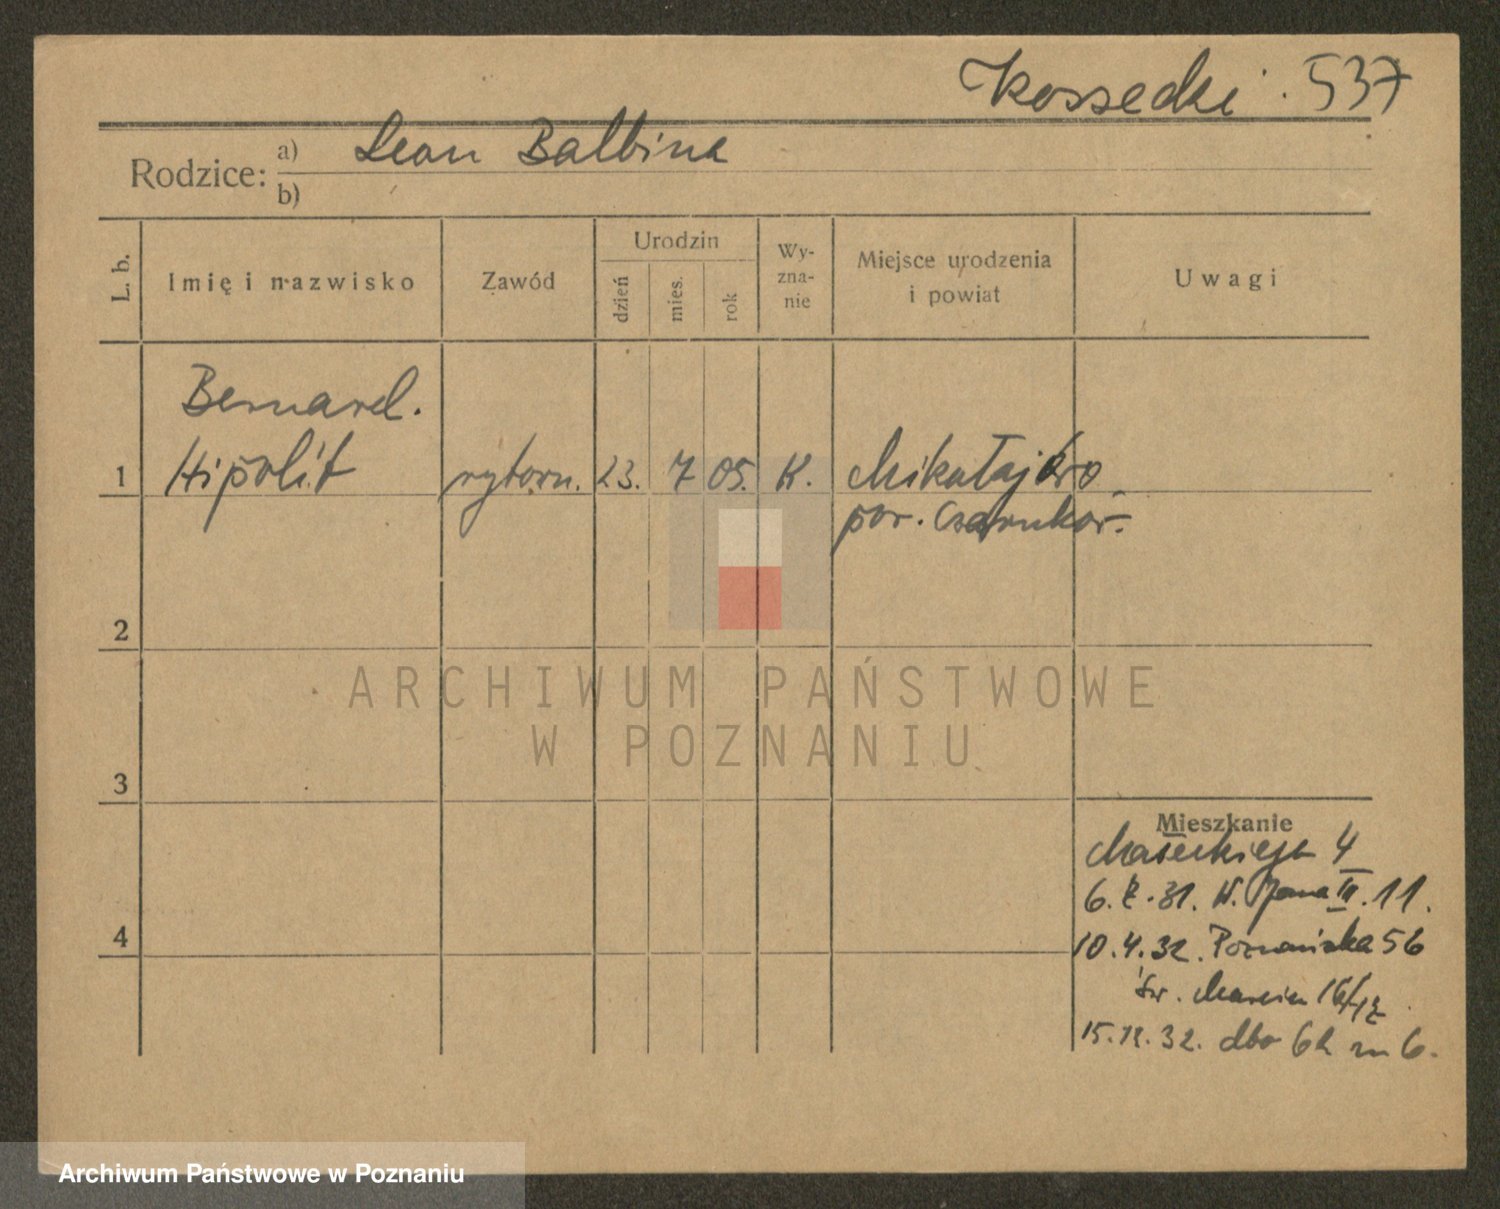 Kossecki . 537
Rodzice: a) Leon Balbina
b)
L. b. Imię i nazwisko Zawód Urodzin dzień mies. rok Wy-zna-nie Miejsce urodzenia i powiat Uwagi
Bernard.
1 Hipolit rytown. 23. 7 05. K. Mikołajewo
pow. Czarnków.
2
ARCHIWUM PAŃSTWOWE
W POZNANIU
3
Mieszkanie
Małeckiego 4
6. 31. Jana III. 11.
4
10.4.32. Poznańska 56
Św. Marcin
15. 32. dto 62 m 6.
Archiwum Państwowe w Poznaniu